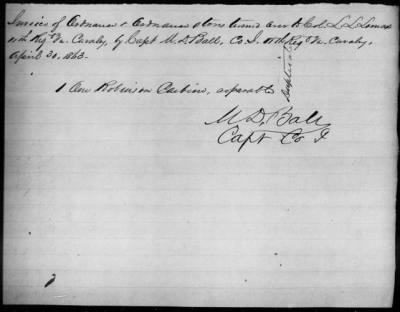 Invoice of Ordnance & Ordnance Stores turned over to Col. L. L. Lomax
11th Reg Va. Cavalry, by Capt M. D. Ball, Co I. 11th Reg Va. Cavalry,
April 30, 1863.
Duplicate
1 One Robinson Carbine,
M. D. Ball
Capt Co I